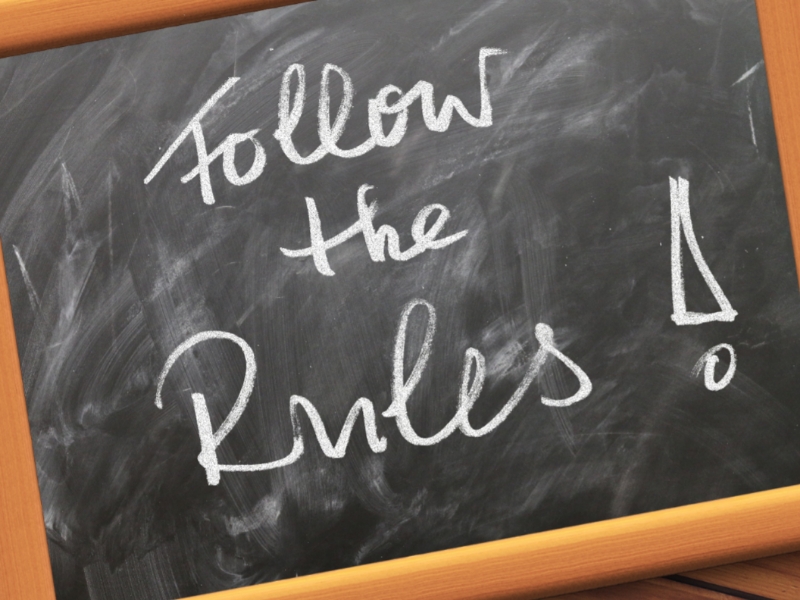 Follow
the
Rules!